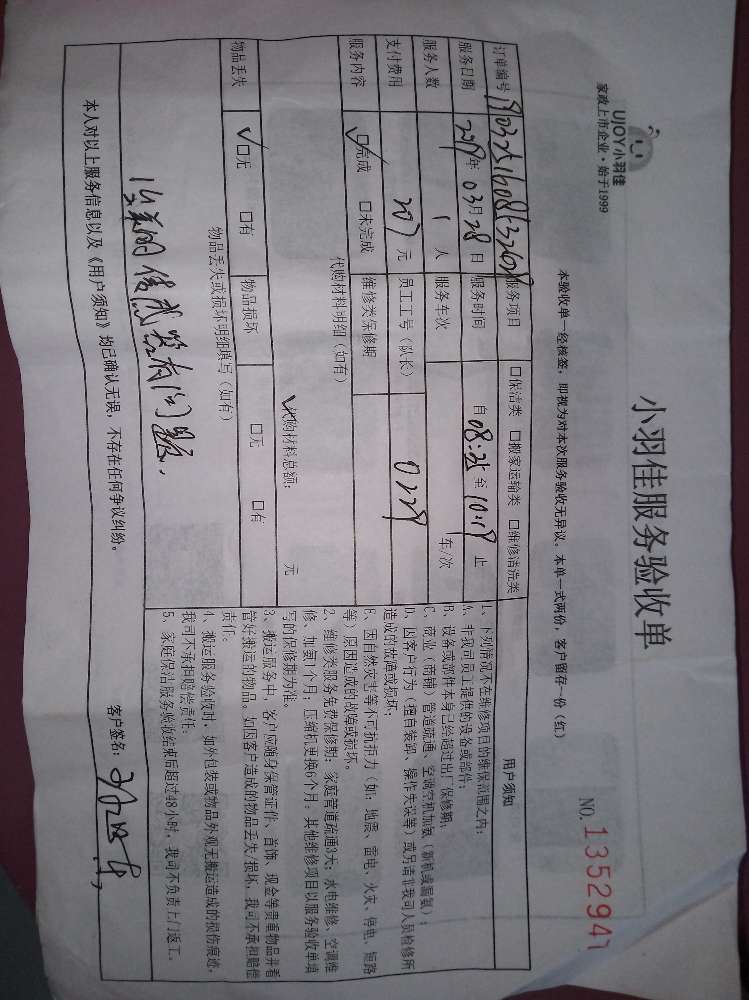 UJOY小羽佳
家政上市企业·始于1999
小羽佳服务验收单
NO.1352941
本验收单一经核签，即视为对本次服务验收无异议，本单一式两份，客户留存一份（红）
订单编号 服务项目 □保洁类 □搬家运输类 □维修清洗类
服务日期 2019年03月28日 服务时间 自08:25至10:19止
服务人数 1人 服务车次 车/次
支付费用 207元 员工工号（队长） 0229
服务内容 ✓□完成 □未完成 维修类保修期
代购材料明细（如有）
✓代购材料总额： 元
物品丢失 ✓□无 □有 物品损坏 □无 □有
物品丢失或损坏明细填写（如有）
有问题.
用户须知
1、下列情况不在维修项目的维保范围之内：
A、非我司员工提供的设备或部件；
B、设备或部件本身已经超过出厂保修期；
C、商业（商铺）管道疏通、空调空机加氨（新机或漏氨）；
D、因客户行为（擅自装卸、操作失误等）或另请非我司人员检修所
造成的故障或损坏；
E、因自然灾害等不可抗拒力（如：地震、雷电、火灾、停电、短路
等）原因造成的故障或损坏。
2、维修类服务免费保修期：家庭管道疏通3天；水电维修、空调维
修、加氨1个月；压缩机更换6个月。其他维修项目以服务验收单填
写的保修期为准。
3、搬运服务中，客户应随身保管证件、首饰、现金等贵重物品并看
管好搬运的物品。如因客户造成的物品丢失/损坏，我司不承担赔偿
责任。
4、搬运服务验收时，如外包装或物品外观无搬运造成的损伤痕迹，
我司不承担赔偿责任。
5、家庭保洁服务验收结束后超过48小时，我司不负责上门返工。
本人对以上服务信息以及《用户须知》均已确认无误，不存在任何争议纠纷。 客户签名：